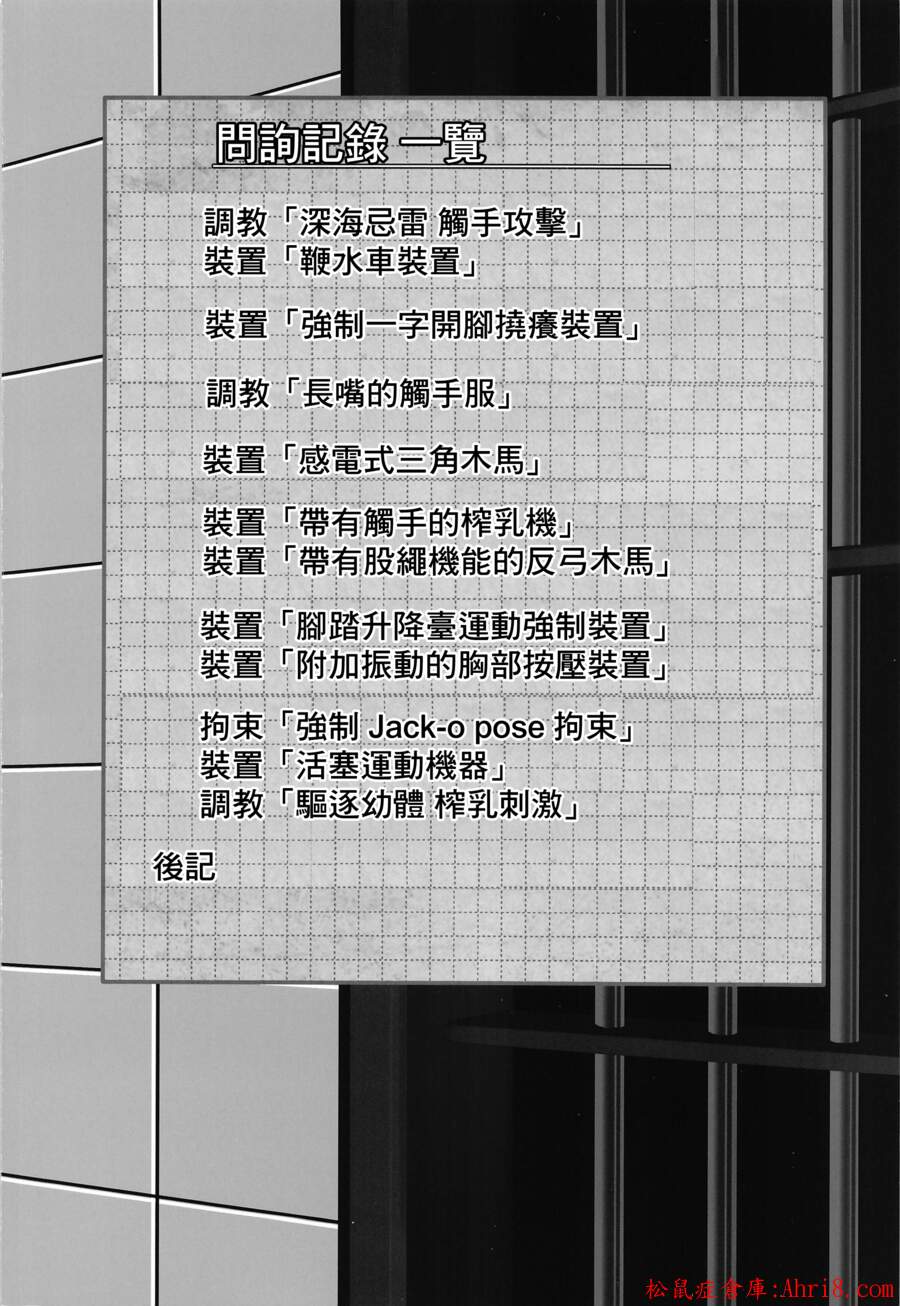 問詢記錄 一覽
調教「深海忌雷 觸手攻擊」
裝置「鞭水車裝置」
裝置「強制一字開腳撓癢裝置」
調教「長嘴的觸手服」
裝置「感電式三角木馬」
裝置「帶有觸手的榨乳機」
裝置「帶有股繩機能的反弓木馬」
裝置「腳踏升降臺運動強制裝置」
裝置「附加振動的胸部按壓裝置」
拘束「強制 Jack-o pose 拘束」
裝置「活塞運動機器」
調教「驅逐幼體 榨乳刺激」
後記
松鼠症倉庫:Ahri8.com/